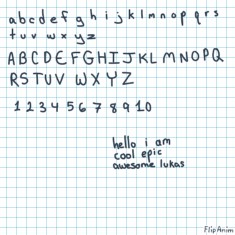 a b c d e f g h i j k l m n o p q r s
t u v w x y z
A B C D E F G H I J K L M N O P Q
R S T U V W X Y Z
1 2 3 4 5 6 7 8 9 10
hello i am
cool epic
awesome lukas
FlipAnim